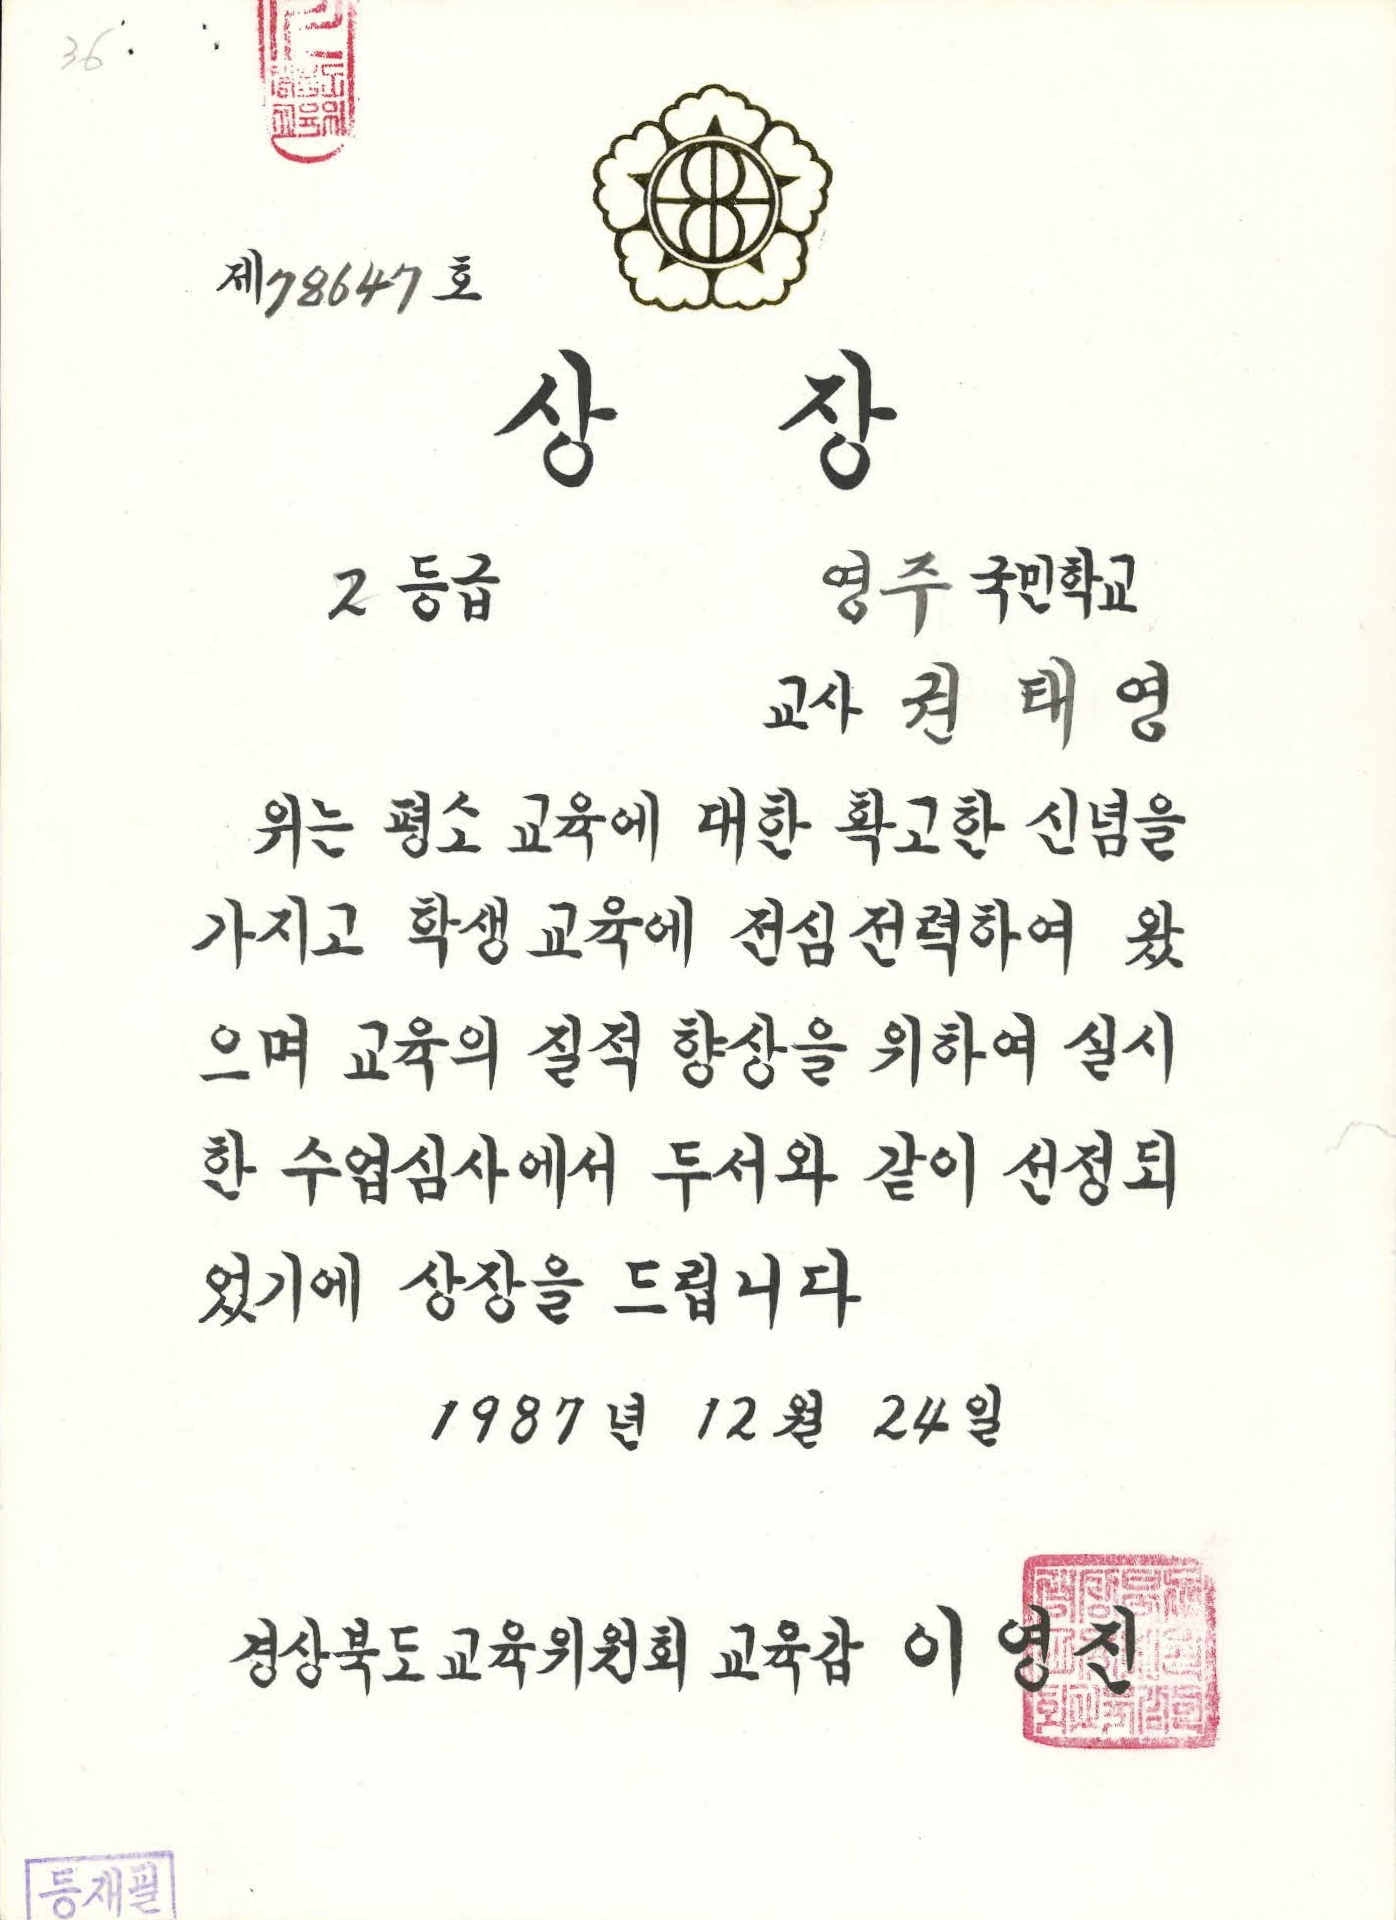 36
제78647호
상 장
2 등급 영주 국민학교
교사 권 태 영
위는 평소 교육에 대한 확고한 신념을
가지고 학생 교육에 전심 전력하여 왔
으며 교육의 질적 향상을 위하여 실시
한 수업심사에서 두서와 같이 선정되
었기에 상장을 드립니다
1987년 12월 24일
경상북도교육위원회 교육감 이 영진
등재필